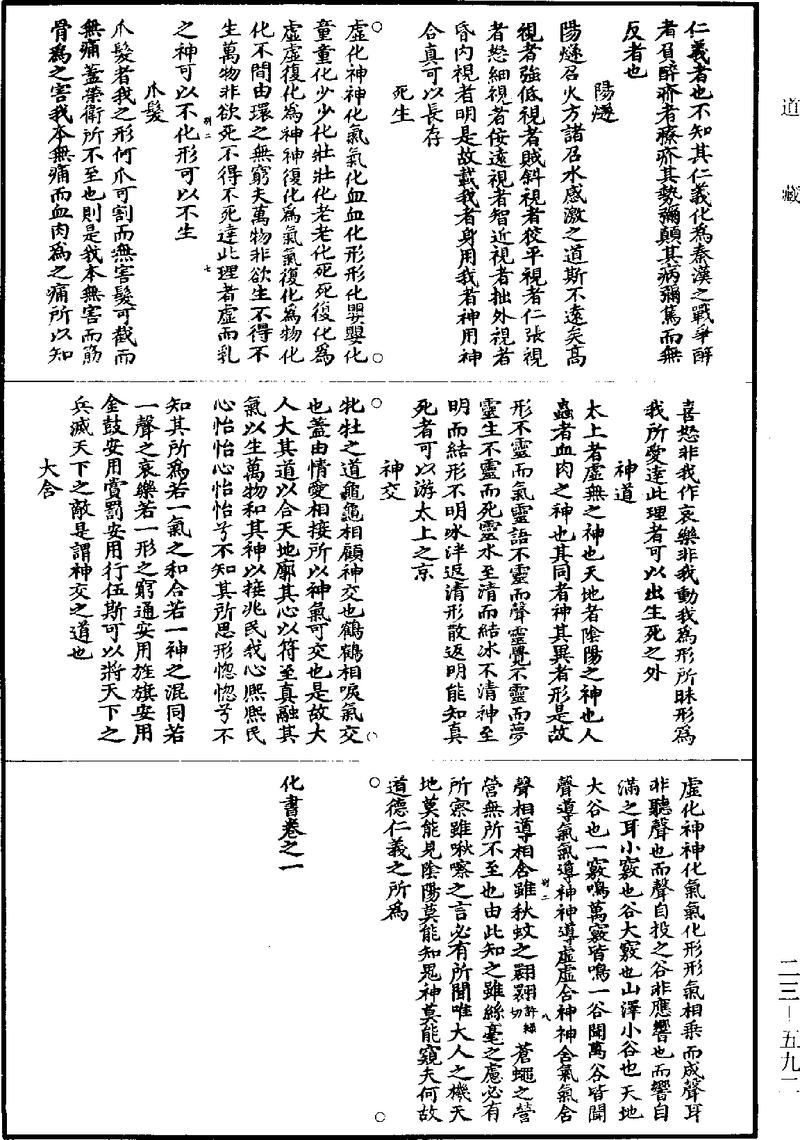 道藏
二三—五九二
仁義者也不知其仁義化為秦漢之戰爭醉
者負醉疥者療疥其勢彌顛其病彌篤而無
反者也
陽燧
陽燧召火方諸召水感激之道斯不遠矣高
視者強低視者賊斜視者狡平視者仁張視
者怒細視者佞遠視者智近視者拙外視者
昏內視者明是故載我者身用我者神用神
合真可以長存
死生
虛化神神化氣氣化血血化形形化嬰嬰化
童童化少少化壯壯化老老化死死復化為
虛虛復化為神神復化為氣氣復化為物化
化不間由環之無窮夫萬物非欲生不得不
生萬物非欲死不得不死達此理者虛而乳
之神可以不化形可以不生
爪髮
爪髮者我之形何爪可割而無害髮可截而
無痛蓋榮衛所不至也則是我本無害而筋
骨為之害我本無痛而血肉為之痛所以知
喜怒非我作哀樂非我動我為形所昧形為
我所愛達此理者可以出生死之外
神道
太上者虛無之神也天地者陰陽之神也人
蟲者血肉之神也其同者神其異者形是故
形不靈而氣靈語不靈而聲靈覺不靈而夢
靈生不靈而死靈水至清而結冰不清神至
明而結形不明冰泮返清形散返明能知真
死者可以游太上之京
神交
牝牡之道龜龜相顧神交也鶴鶴相唳氣交
也蓋由情愛相接所以神氣可交也是故大
人大其道以合天地廓其心以符至真融其
氣以生萬物和其神以接兆民我心熙熙民
心怡怡心怡怡兮不知其所思形惚惚兮不
知其所為若一氣之和合若一神之混同若
一聲之哀樂若一形之窮通安用旌旗安用
金鼓安用賞罰安用行伍斯可以將天下之
兵滅天下之敵是謂神交之道也
大含
虛化神神化氣氣化形形氣相乘而成聲耳
非聽聲也而聲自投之谷非應響也而響自
滿之耳小竅也谷大竅也山澤小谷也天地
大谷也一竅鳴萬竅皆鳴一谷聞萬谷皆聞
聲導氣氣導神神導虛虛含神神含氣氣含
聲聲相導相含雖秋蚊之翾翾許緣切蒼蠅之營
營無所不至也由此知之雖絲毫之慮必有
所察雖啾嚓之言必有所聞唯大人之機天
地莫能見陰陽莫能知鬼神莫能窺夫何故
道德仁義之所為
化書卷之一